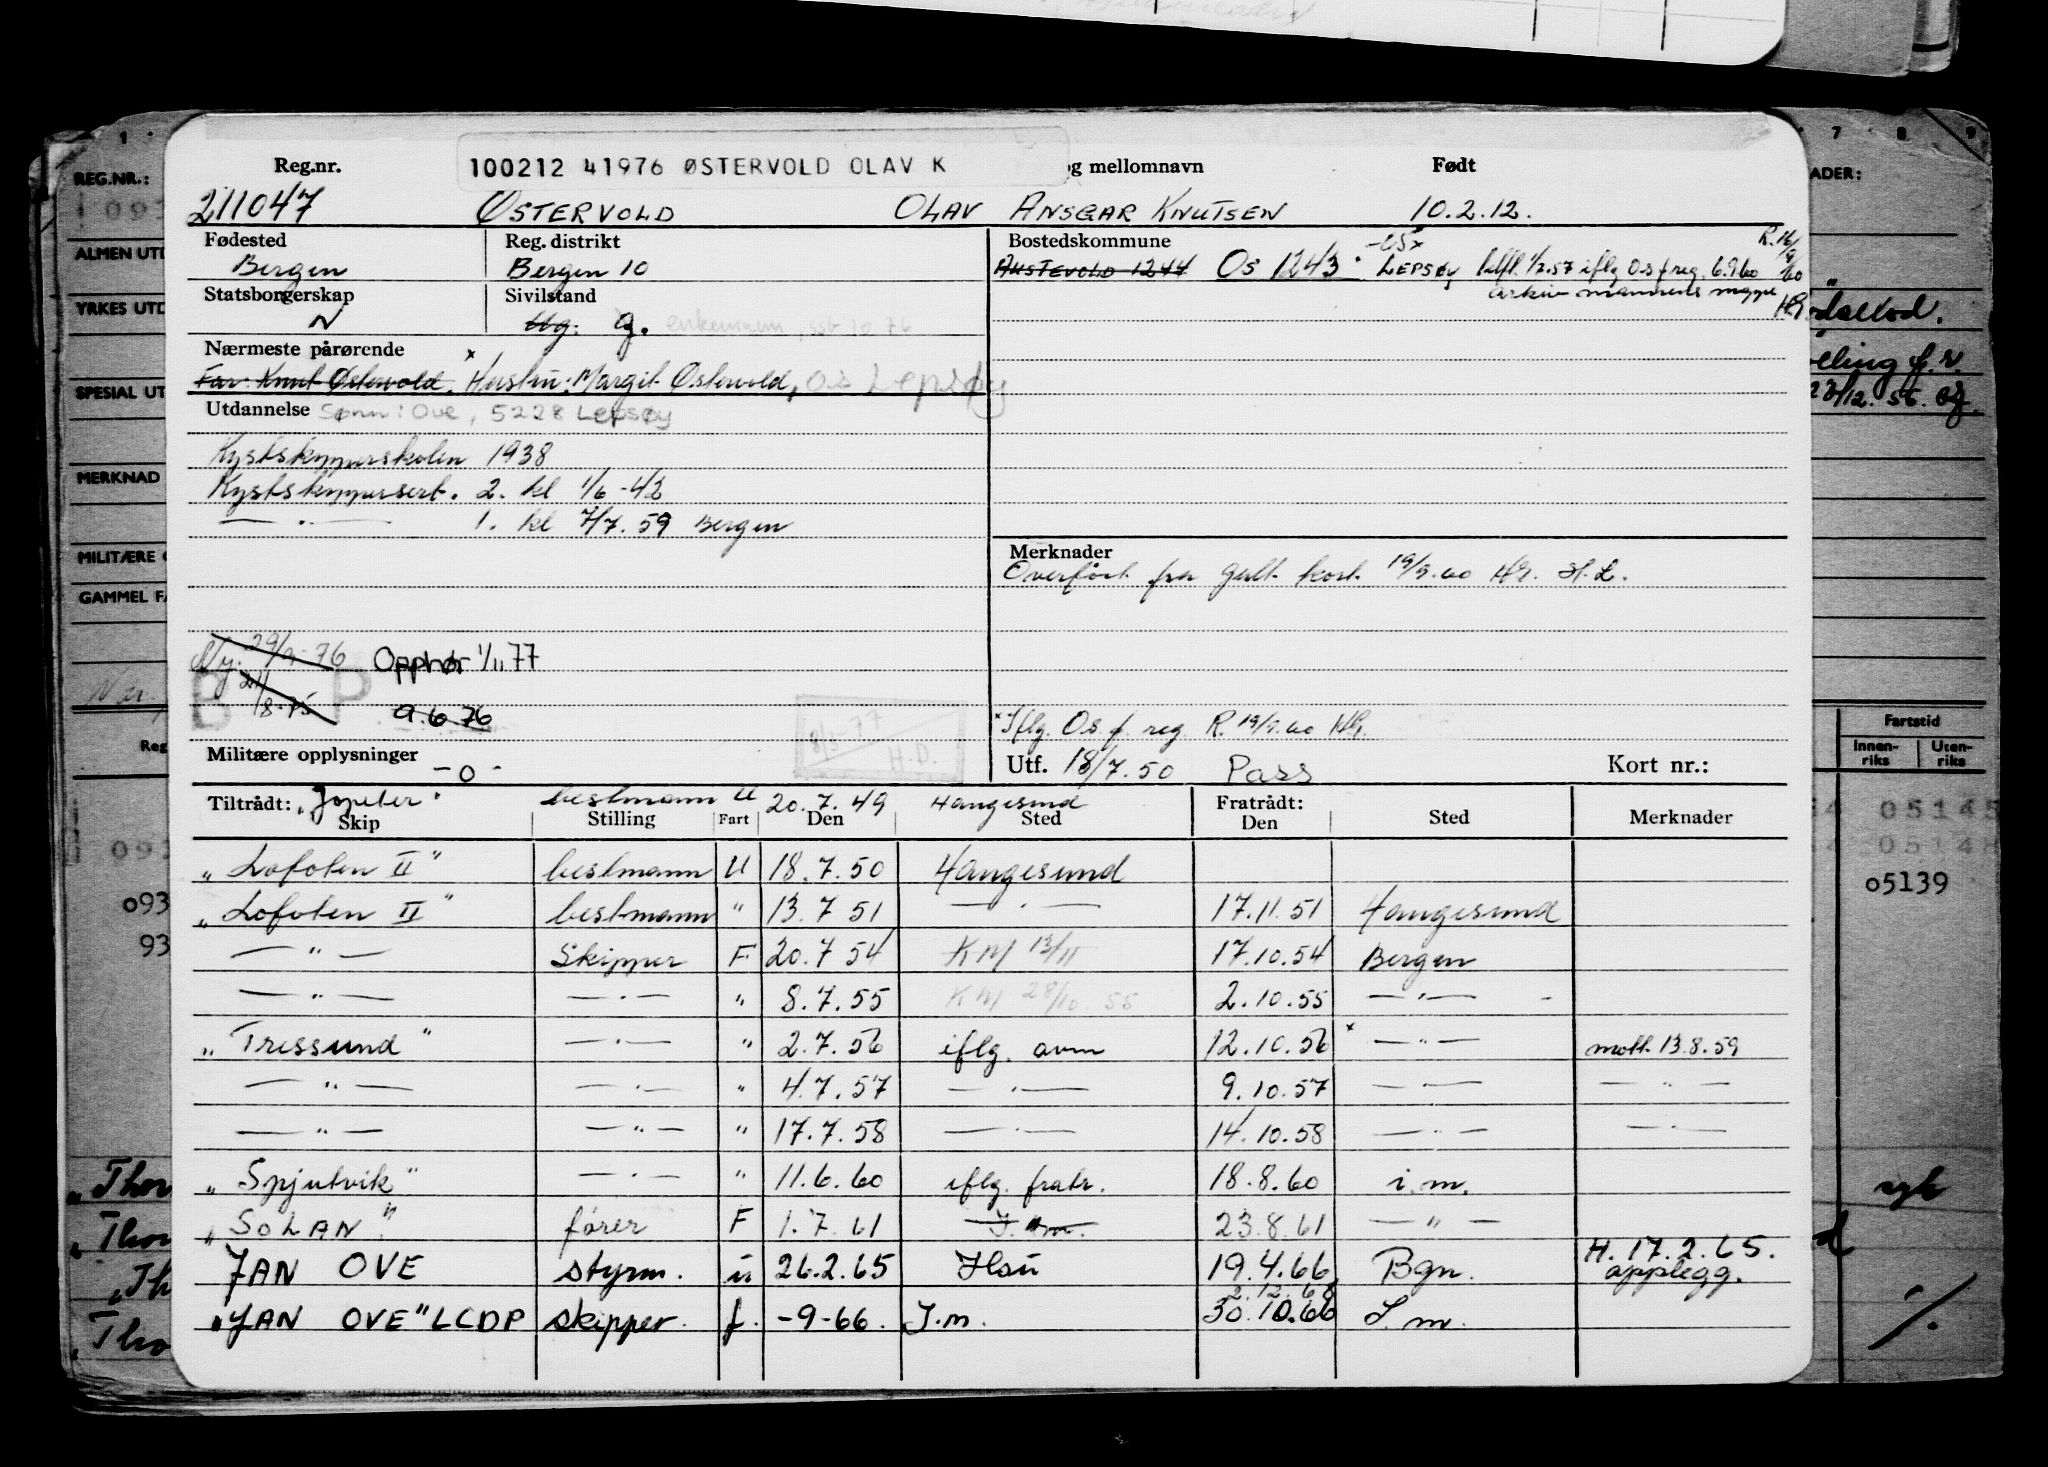 Reg.nr. 100212 41976 ØSTERVOLD OLAV K og mellomnavn Født
211047 ØSTERVOLD OLAV ANSGAR KNUTSEN 10.2.12.
Fødested Reg. distrikt Bostedskommune
Bergen Bergen 10 AUSTEVOLD 1244 Os 1243 LEPSØY 1/2.57 iflg Os f reg. 6.9.60 R.16/9 60
Statsborgerskap Sivilstand arkiv mannens mappe HG.
N Ug. g. enkemann
Nærmeste pårørende
Far: Knut Østervold. Hustru: Margit Østervold, Os Lepsøy
Utdannelse Sønn: Ove, 5228 Lepsøy
Kystskipperskolen 1938
Kystskippersert. 2. kl 1/6-42
— " — 1. kl 7/7.59 Bergen
Merknader
Overført fra gult kort 19/9.60 HG. H.L.
Ny. 29/9-76 Opphør 1/11 77
B P 8-75 9.6 76
8/3-77 H.D.
* Iflg. Os f. reg R. 19/9.60 HG.
Militære opplysninger -0- Utf. 18/7.50 Pass Kort nr.:
Tiltrådt: "Jopeter" bestmann U 20.7.49 Haugesund Fratrådt:
Skip Stilling Fart Den Sted Den Sted Merknader
"Lofoten II" bestmann U 18.7.50 Haugesund
"Lofoten II" bestmann " 13.7 51 — " — 17.11.51 Haugesund
— " — Skipper F. 20.7 54 KM 13/11 17.10.54 Bergen
— " — — " — " 8.7.55 KM 28/10 55 2.10.55 — " —
"Tressund" — " — " 2.7.56 iflg. avm 12.10.56 * — " — mott. 13.8.59
— " — — " — " 4.7.57 — " — 9.10.57 — " — — " —
— " — — " — " 17.7.58 — " — 14.10.58 — " — — " —
"Spjutvik" — " — " 11.6.60 iflg. fratr. 18.8.60 i.m.
"SOLAN" fører F 1.7.61 I.m. 23.8.61 — " —
JAN OVE styrm. u 26.2.65 Hsu 19.4.66 Bgn. H. 17.2.65. opplegg.
2.12.68
"JAN OVE" LCDP skipper. f. -9-66. I.m. 30.10.66 I.m.
REG.NR.:
ALMEN UTD
YRKES UTD
SPESIAL UT
MERKNAD
MILITÆRE
GAMMEL FA
Reg
093
93
"Thor
"Thor
"Th
"Tho
1
7 8 9
ADER:
23/12.56.
Fartstid
Innen-riks Uten-riks
05145
05148
05139